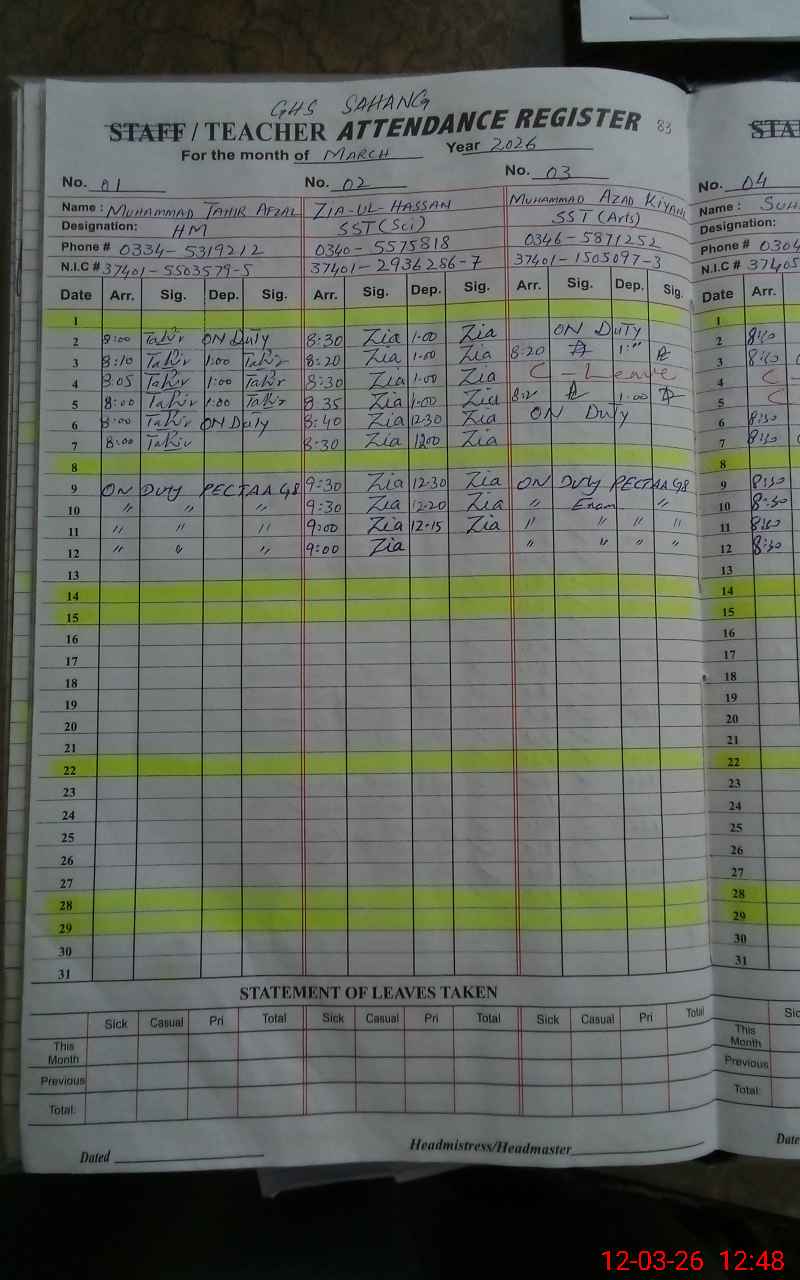 GHS SAHANG
STAFF / TEACHER ATTENDANCE REGISTER 83
For the month of MARCH Year 2026
No. 01 No. 02 No. 03
Name : MUHAMMAD TAHIR AFZAL ZIA-UL-HASSAN MUHAMMAD AZAD KIYANI
Designation: HM SST(Sci) SST(Arts)
Phone # 0334-5319212 0340-5575818 0346-5871252
N.I.C # 37401-5503579-5 37401-2936286-7 37401-1505097-3
Date Arr. Sig. Dep. Sig. Arr. Sig. Dep. Sig. Arr. Sig. Dep. Sig.
1
2 8:00 Tahir ON Duty 8:30 Zia 1-00 Zia ON DUTY
3 8:10 Tahir 1:00 Tahir 8:20 Zia 1-00 Zia 8:20
4 8:05 Tahir 1:00 Tahir 8:30 Zia 1-00 Zia C - Leave
5 8:00 Tahir 1:00 Tahir 8:35 Zia 1-00 Zia 1:00
6 8:00 Tahir ON Duty 8:40 Zia 12-30 Zia ON Duty
7 8:00 Tahir 8:30 Zia 1200 Zia
8
9 ON Duty PECTAA G8 9:30 Zia 12-30 Zia ON Duty PECTAA G8
10 " " " 9:30 Zia 12-20 Zia " Exam "
11 " " " 9:00 Zia 12-15 Zia " " " "
12 " " " 9:00 Zia " " " "
13
14
15
16
17
18
19
20
21
22
23
24
25
26
27
28
29
30
31
STATEMENT OF LEAVES TAKEN
Sick Casual Pri Total Sick Casual Pri Total Sick Casual Pri Total
This Month
Previous
Total:
Dated Headmistress/Headmaster
No. 04
Name :
Designation:
Phone #
N.I.C #
Date Arr.
1
2 8:30
3 8:30
4 C -
5 C
6 8:30
7 8:30
8
9 8:30
10 8:30
11 8:30
12 8:30
13
14
15
16
17
18
19
20
21
22
23
24
25
26
27
28
29
30
31
This Month
Previous
Total:
12-03-26 12:48